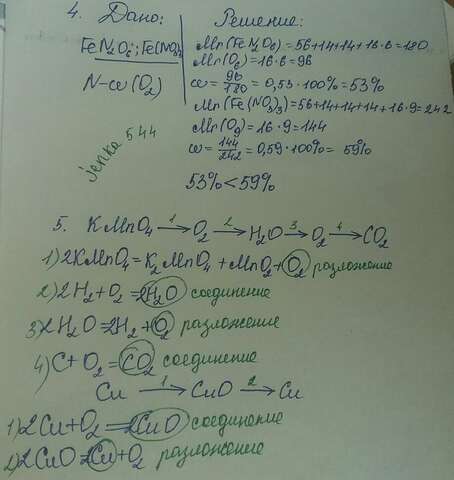 4. Дано:
Решение:
FeN2O6; Fe(NO3)3
N-ω(O2)
Mr(FeN2O6)=56+14+14+16·6=180
Mr(O6)=16·6=96
ω=96/180=0,53·100%=53%
Mr(Fe(NO3)3)=56+14+14+14+16·9=242
Mr(O9)=16·9=144
ω=144/242=0,59·100%=59%
53%<59%
jenka 544
5. KMnO4 1→ O2 2→ H2O 3→ O2 4→ CO2
1) 2KMnO4=K2MnO4+MnO2+O2 разложение
2) 2H2+O2=2H2O соединение
3) 2H2O=2H2+O2 разложение
4) C+O2=CO2 соединение
Cu 1→ CuO 2→ Cu
1) 2Cu+O2=2CuO соединение
2) 2CuO=2Cu+O2 разложение